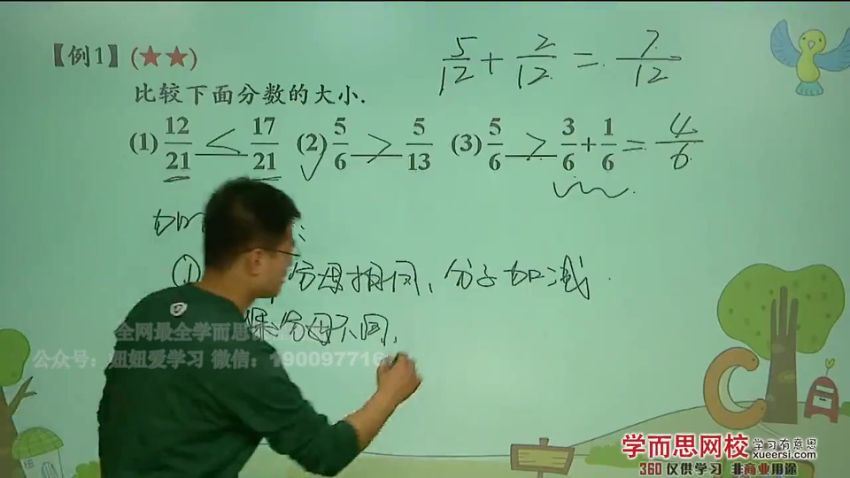 【例1】(★★)
5/12 + 2/12 = 7/12
比较下面分数的大小.
(1) 12/21 < 17/21 (2) 5/6 > 5/13 (3) 5/6 > 3/6 + 1/6 = 4/6
加
① 分母相同、分子加减.
分母不同、
全网最全学而思
公众号: 妞妞爱学习 微信:
学而思网校 学习有意思
xueersi.com
360 仅供学习 非商业用途